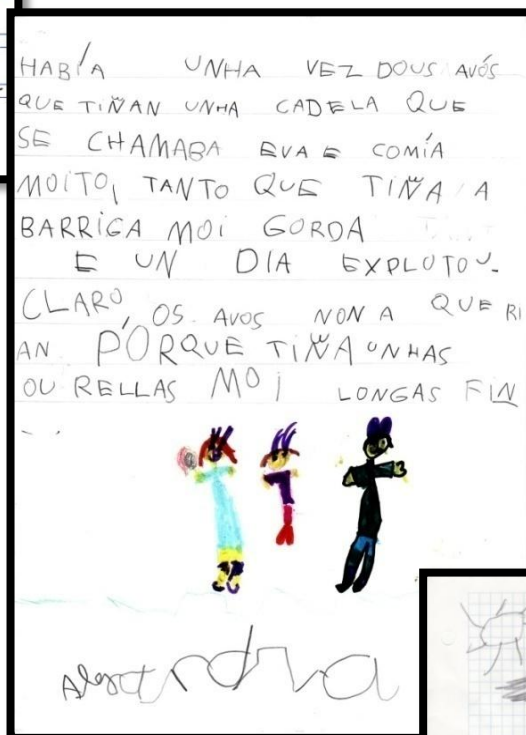 HABÍA UNHA VEZ DOUS AVÓS
QUE TIÑAN UNHA CADELA QUE
SE CHAMABA EVA E COMÍA
MOITO, TANTO QUE TIÑA A
BARRIGA MOI GORDA
E UN DIA EXPLUTOU.
CLARO, OS AVOS NON A QUERI
AN PORQUE TIÑA UNHAS
OU RELLAS MOI LONGAS FIN